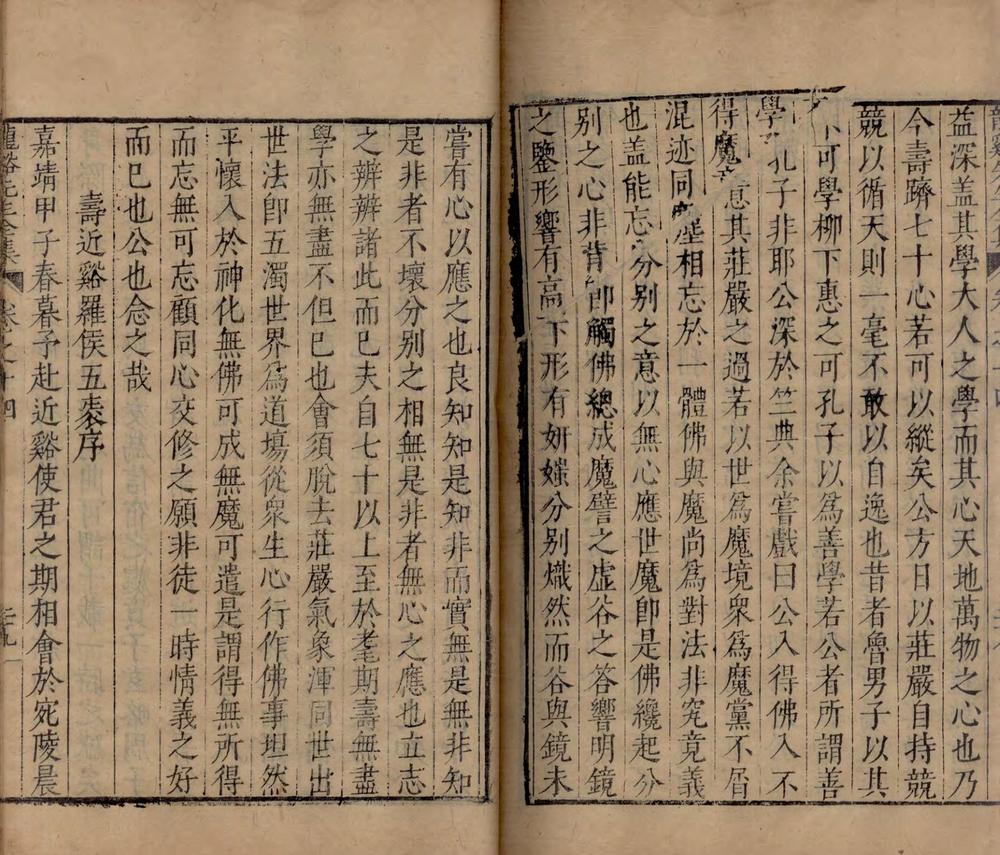 益深蓋其學大人之學而其心天地萬物之心也乃
今壽躋七十心若可以縱矣公方日以莊嚴自持競
競以循天則一毫不敢以自逸也昔者魯男子以其
可學柳下惠之可孔子以爲善學若公者所謂善
學孔子非耶公深於竺典余嘗戲曰公入得佛入不
得魔意其莊嚴之過若以世爲魔境衆爲魔黨不屑
混迹同塵相忘於一體佛與魔尚爲對法非究竟義
也盖能忘分別之意以無心應世魔卽是佛纔起分
別之心非背卽觸佛總成魔譬之虛谷之答響明鏡
之鑒形響有高下形有妍媸分別熾然而谷與鏡未
嘗有心以應之也良知知是知非而實無是無非知
是非者不壞分別之相無是非者無心之應也立志
之辨辨諸此而已夫自七十以上至於耄期壽無盡
學亦無盡不但已也會須脫去莊嚴氣象渾同世出
世法卽五濁世界爲道場從衆生心行作佛事坦然
平懷入於神化無佛可成無魔可遣是謂得無所得
而忘無可忘顧同心交修之願非徒一時情義之好
而已也公也念之哉
壽近谿羅侯五袠序
嘉靖甲子春暮予赴近谿使君之期相會於宛陵晨
龍谿先生全集 卷之十四